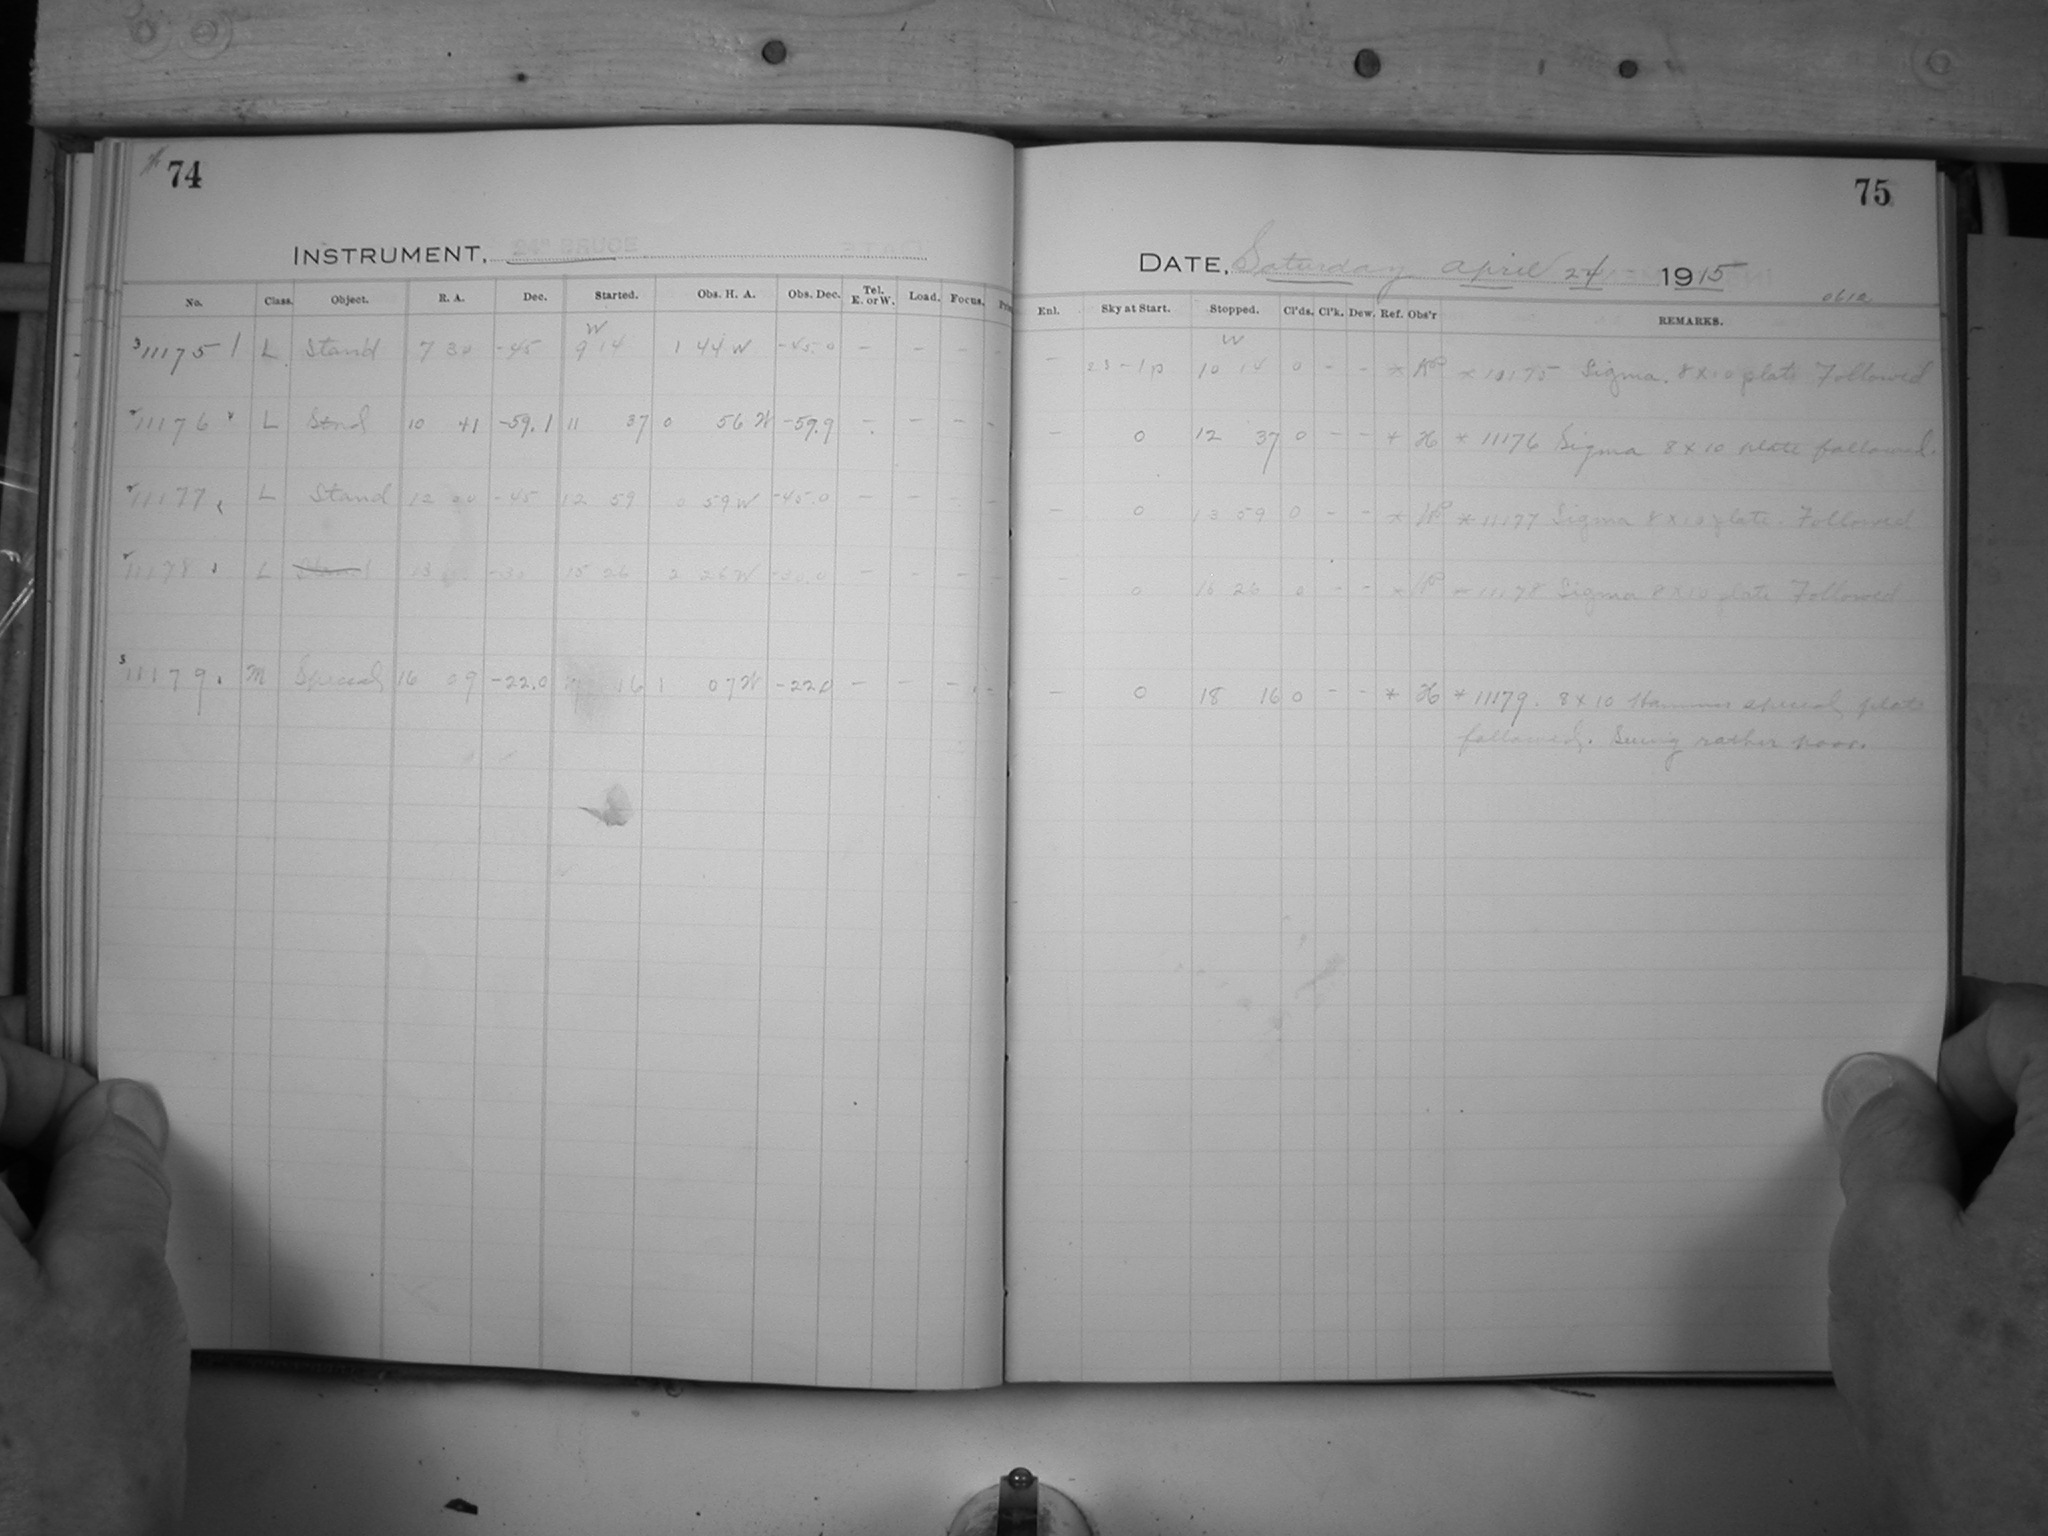 74
INSTRUMENT, 24" BRUCE
No. Class. Object. R. A. Dec. Started. Obs. H. A. Obs. Dec. Tel. E. or W. Load. Focus.
W
11175 L Stand 7 30 -45 9 14 1 44 W -45.0 - - - -
11176 L Stnd 10 41 -59.1 11 37 0 56 W -59.9 - - - -
11177 L Stand 12 00 -45 12 59 0 59 W -45.0 - - - -
11178 L Stand 13 -30 15 26 2 26 W -30.0 - - - -
11179 M Special 16 09 -22.0 16 1 07 W -22.0 - - - -
75
DATE, Saturday April 24 1915
Enl. Sky at Start. Stopped. Cl'ds. Cl'k. Dew. Ref. Obs'r REMARKS.
W
- 10 14 0 - - * * 11175 Sigma. 8x10 plate Followed
- 0 12 37 0 - - * H * 11176 Sigma 8 x 10 plate followed.
- 0 13 59 0 - - * * 11177 Sigma 8x10 plate. Followed
- 0 16 26 0 - - * * 11178 Sigma 8x10 plate Followed
- 0 18 16 0 - - * H * 11179. 8 x 10 Hammer special plate
followed. Seeing rather poor.